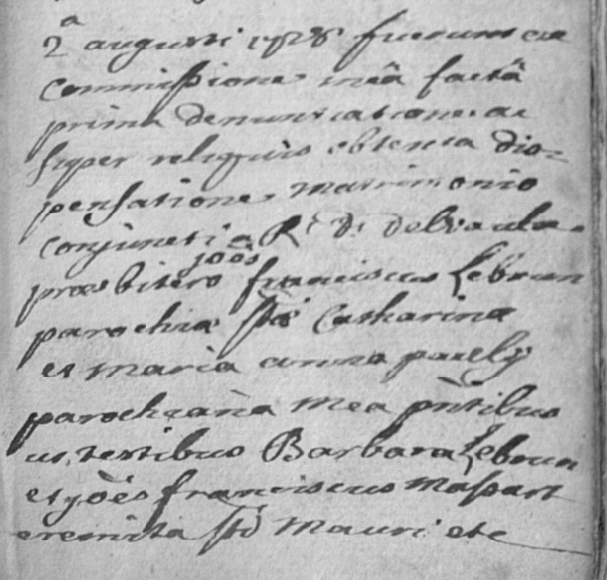 2ª augusti 1728 fuerunt ex
commissione meâ factâ
prima denuntiatione ac
super reliquis obtenta dis=
pensatione matrimonio
conjuncti a R: D: Delvaula
præsbitero joës franciscus Lebrun
parochiæ stæ Catharinæ
et maria anna pacely
parochiana mea pñtibus
ut testibus Barbara Lebrun
et jöës franciscus Massart
eremita sti mauri etc